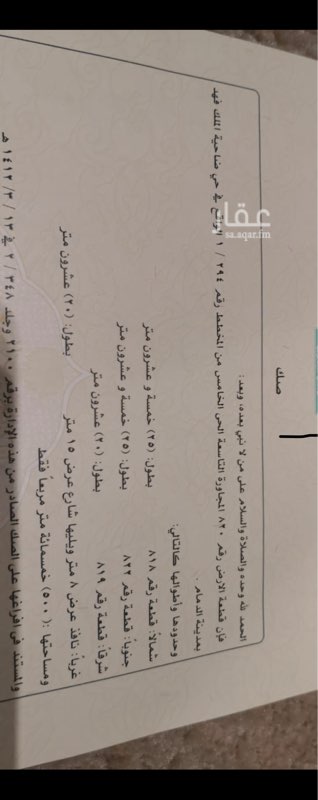 صك
الحمد لله وحده والصلاة والسلام على من لا نبي بعده، وبعد:
فإن قطعة الارض رقم ٨٢٠ المجاورة التاسعة الحى الخامس من المخطط رقم ٢٩٤ / ١ الواقع في حي ضاحية الملك فهد
بمدينة الدمام .
وحدودها وأطوالها كالتالي:
شمالاً: قطعة رقم ٨١٨ بطول: (٢٥) خمسة و عشرون متر
جنوباً: قطعة رقم ٨٢٢ بطول: (٢٥) خمسة و عشرون متر
شرقاً: قطعة رقم ٨١٩ بطول: (٢٠) عشرون متر
غرباً: نافذ عرض ٨ متر ويليها شارع عرض ١٥ متر بطول: (٢٠) عشرون متر
ومساحتها :( ٥٠٠) خمسمائة متر مربعاً فقط
والمستند في افراغها على الصك الصادر من هذه الإدارة برقم ٢١٠٠ وجلد ٣٤٨ / ٢ في ١٣ / ٣ / ١٤١٢ هـ
عقار
sa.aqar.fm